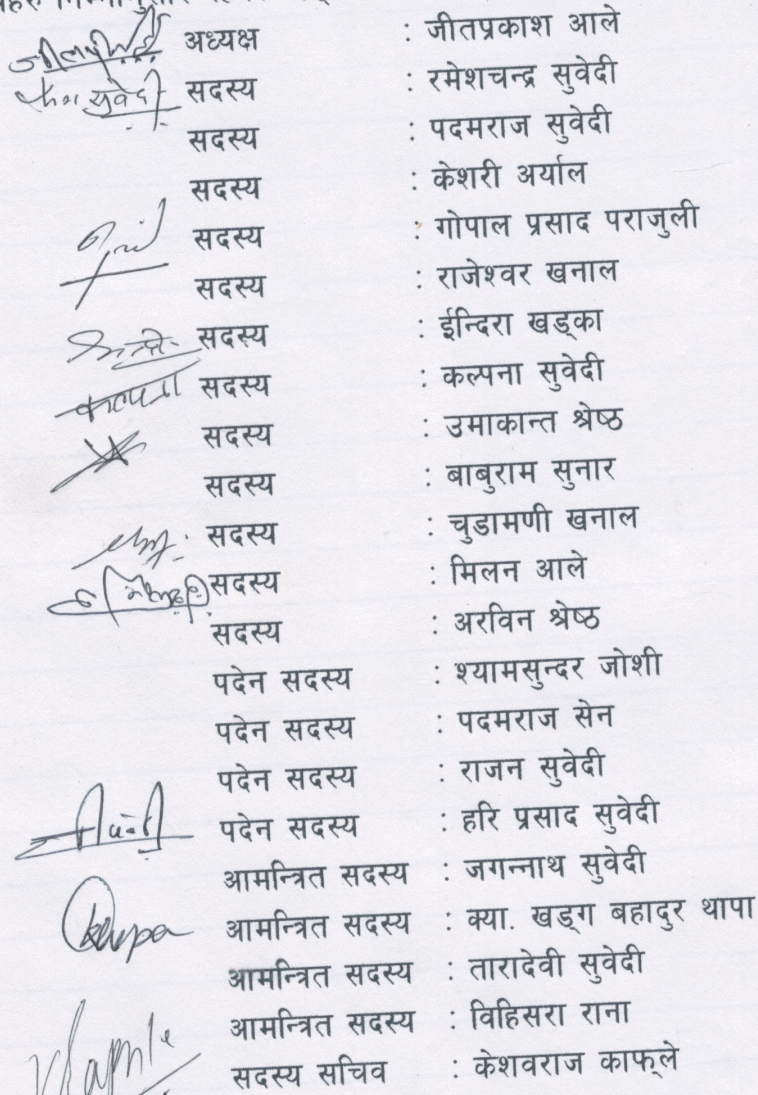 निम्नानुसार
अध्यक्ष : जीतप्रकाश आले
सुवेदी सदस्य : रमेशचन्द्र सुवेदी
सदस्य : पदमराज सुवेदी
सदस्य : केशरी अर्याल
सदस्य : गोपाल प्रसाद पराजुली
सदस्य : राजेश्वर खनाल
सदस्य : ईन्दिरा खड्का
कल्पना सदस्य : कल्पना सुवेदी
सदस्य : उमाकान्त श्रेष्ठ
सदस्य : बाबुराम सुनार
सदस्य : चुडामणी खनाल
सदस्य : मिलन आले
सदस्य : अरविन श्रेष्ठ
पदेन सदस्य : श्यामसुन्दर जोशी
पदेन सदस्य : पदमराज सेन
पदेन सदस्य : राजन सुवेदी
पदेन सदस्य : हरि प्रसाद सुवेदी
आमन्त्रित सदस्य : जगन्नाथ सुवेदी
आमन्त्रित सदस्य : क्या. खड्ग बहादुर थापा
आमन्त्रित सदस्य : तारादेवी सुवेदी
आमन्त्रित सदस्य : विहिसरा राना
सदस्य सचिव : केशवराज काफ्ले